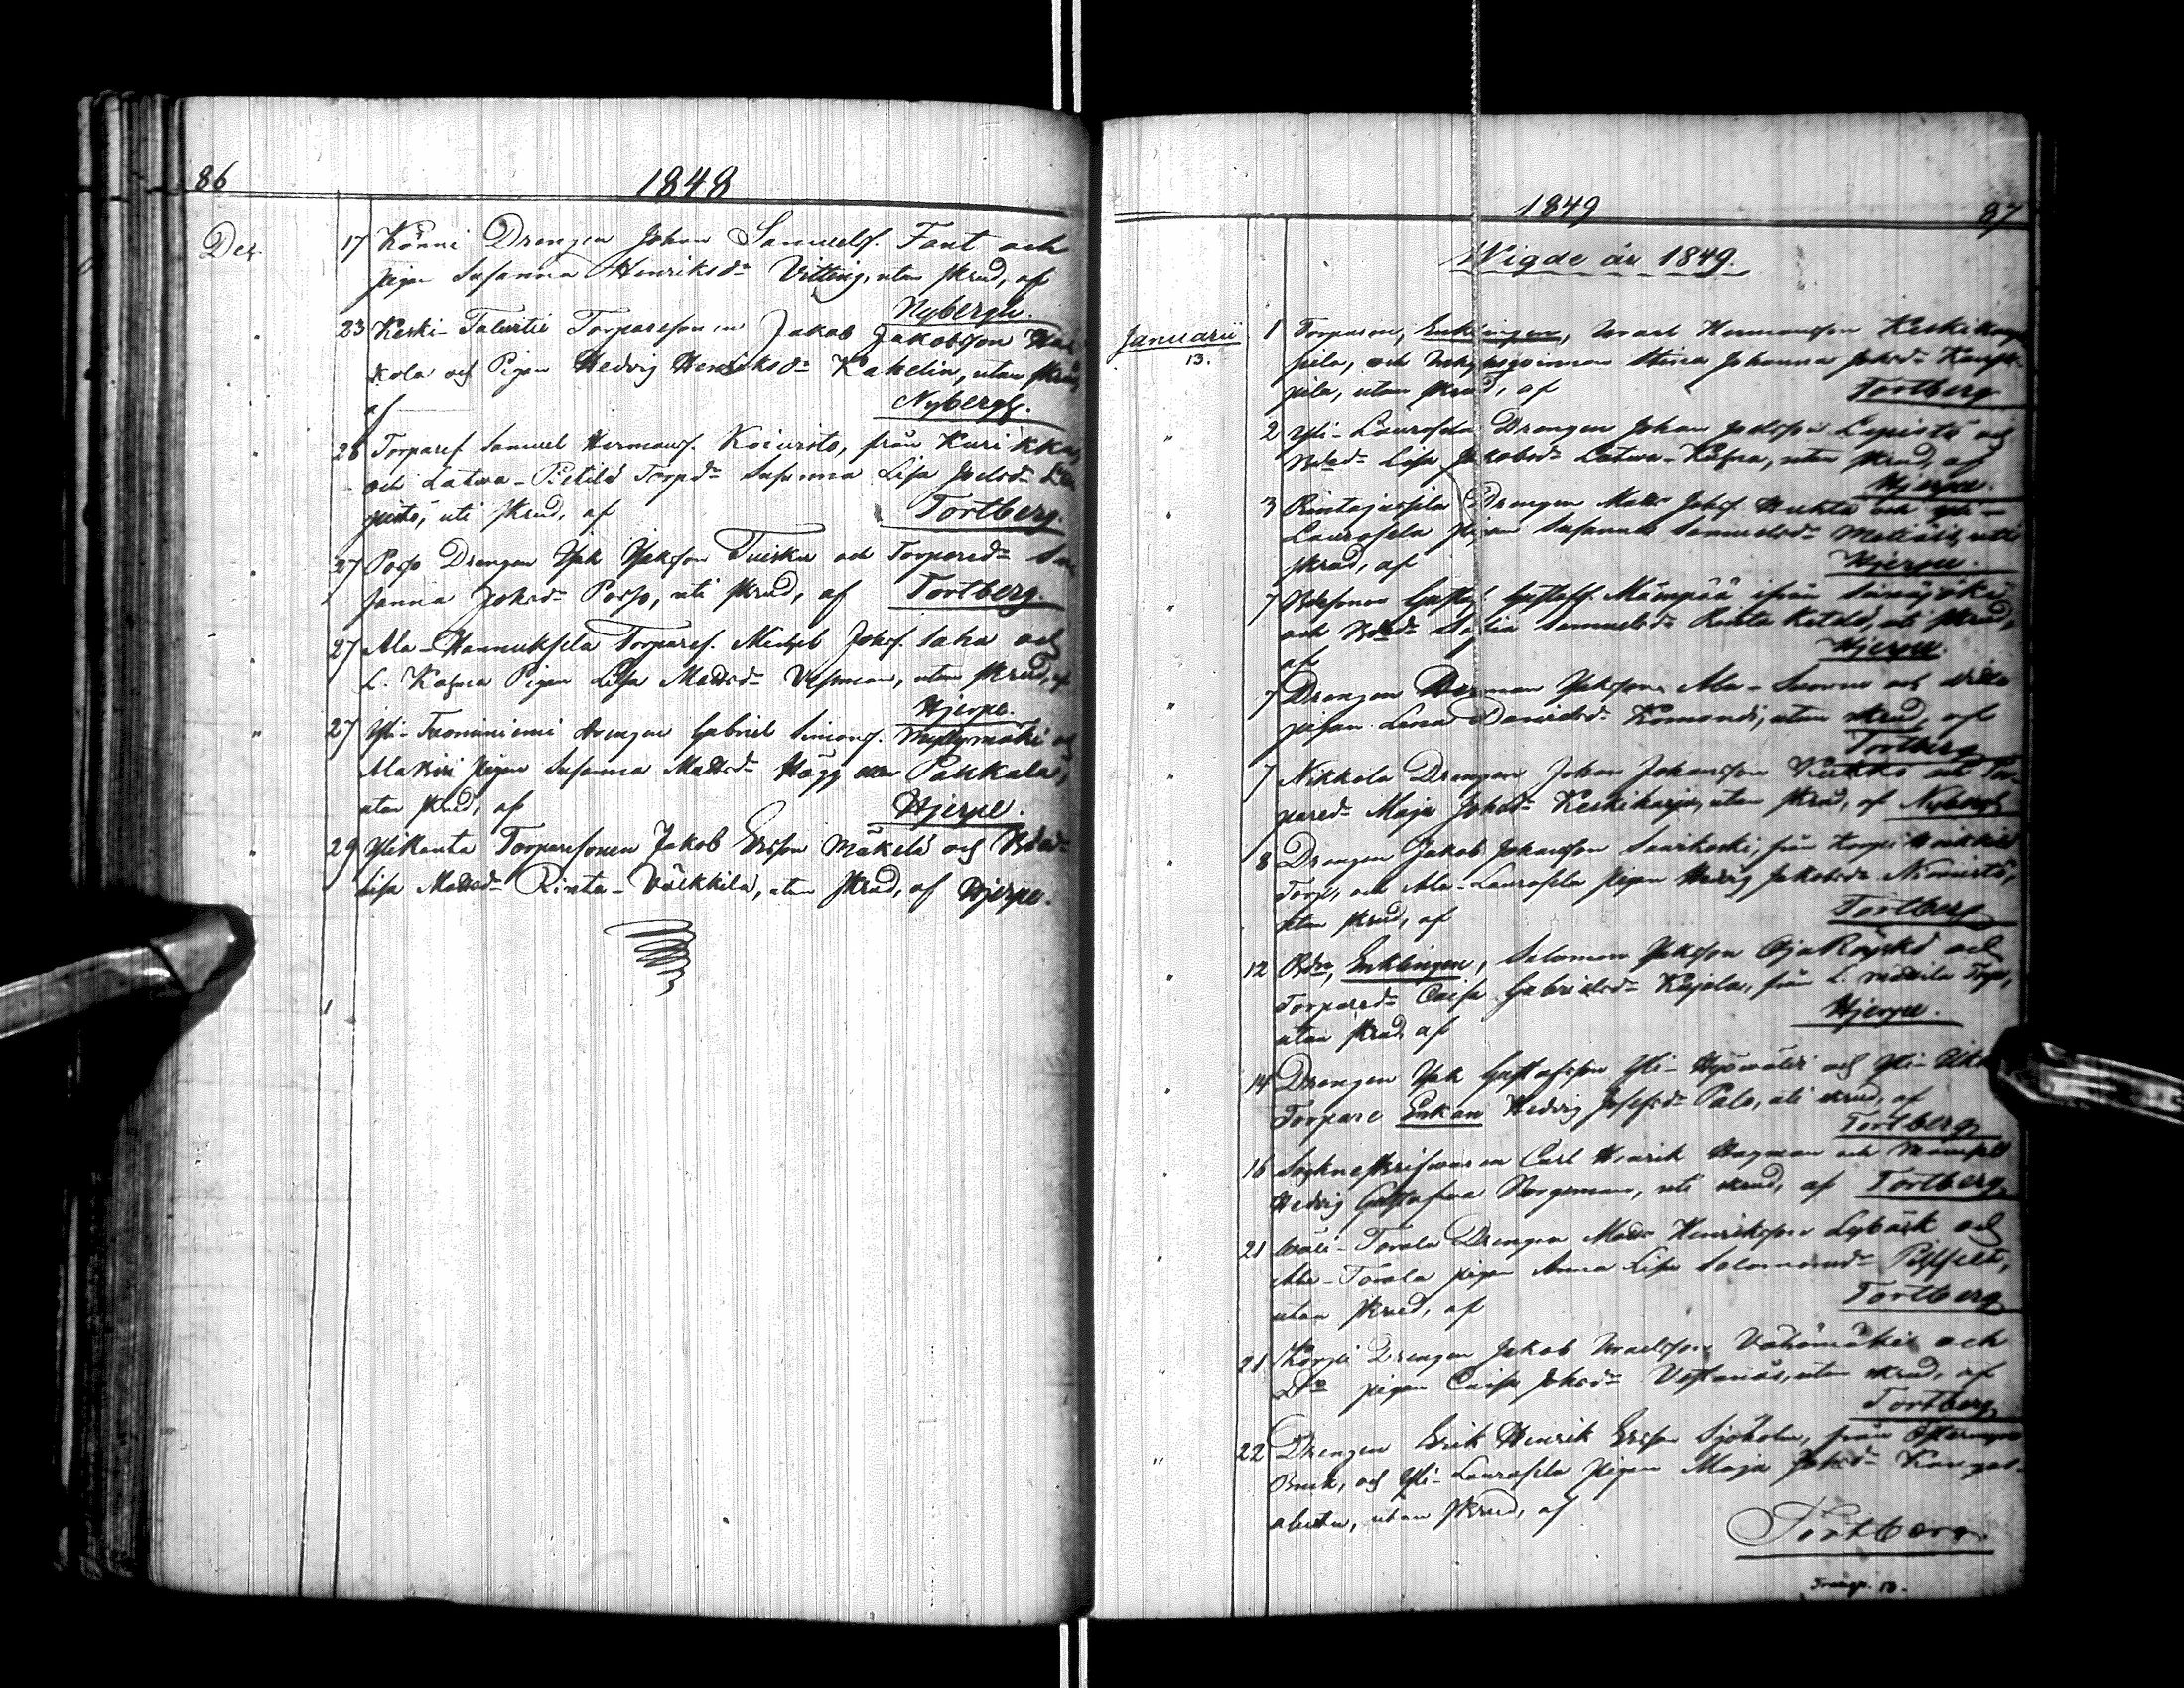 86
1848
Dec. 17 Könni Drengen Johan Samuelsf. Fant och
pigan Susanna Henriksdr Vitting, utan skrud, af
Nybergh.
23 Keski-Talustie Torparesonen Jakob Jakobsson
kola och Pigan Hedvig Henriksdr Kahelin, utan skrud,
af
Nybergh.
26 Torparef. Samuel Hermansf. Koivisto, från Kurikka,
och Latva-Pietilä Torpdr Susanna Lisa Joelsdr
pistö, uti skrud, af Tortberg.
27 Porso Drengen Isak Isaksson Tuisku och Torparedr Su
sanna Johsdr Porso, uti skrud, af Tortberg.
27 Ala-Hannuksela Torparef. Michel Johsf. Saha och
L. Kaphra Pigan Lisa Mattsdr, utan skrud, af
Hjerpe.
27 Yli-Tuominiemi drengen Gabriel Simonsf. Myllymäki och
Alakiri pigan Susanna Mattsdr Hägg eller Pakkala,
utan skrud, af Hjerpe.
29 Ylikanta Torparesonen Jakob Ersson Mäkelä och Bdedr
Lisa Mattsdr Rinta-Välkkilä, utan skrud, af Hjerpe.
1849
87
Wigde år 1849.
Januarii 1 Torparen, Enklingen, Israel Hermansson Keskikamp
13. pila, och Inhysesqvinnan Stina Johanna Johsdr Kamp
pila, utan skrud, af Tortberg
2 Yli-Laurosela Drengen Johan Joelsson Lepistö och
Bdedr Lisa Jakobsdr Latva-, utan skrud, af
Hjerpe.
3 Rintajussila Drengen Matts Johsf. Huhta och Yli-
Laurosela Pigan Susanna Samuelsdr, uti
skrud, af Hjerpe.
7 Bdesonen Gustaf Gustafsf. Mämpää ifrån Seinäjoki
och Bdedr Sofia Samuelsdr Rinta Ketola, uti skrud,
af Hjerpe.
7 Drengen Herman Isaksson Ala-Luoma och
pigan Lena Danielsdr Komonen, utan skrud, af
Tortberg
7 Nikkola Drengen Johan Johansson och Tor-
paredr Maja Johsdr Keskikarja, utan skrud, af Nybergh
8 Drengen Jakob Johansson Saarikoski, från
Torp, och Ala-Laurosela pigan Hedvig Jakobsdr Nimistö,
utan skrud, af Tortberg
12 Bden, Enklingen, Salomon Isaksson Ojakoski och
Torparedr Caisa Gabrielsdr Kujala, från L. Torp,
utan skrud, af Hjerpe.
14 Drengen Isak Gustafsson Yli-Hyövälti och Yli-
Torpare Enkan Hedvig Josefsdr Palo, uti skrud, af
Tortberg
16 Sockneskrifvaren Carl Henrik Hagman och Mamsell
Hedvig Gustafva Norgeman, uti skrud, af Tortberg
21 Wäli-Torala Drengen Matts Henriksson Lybäck och
Ala-Torala pigan Anna Lisa Salomonsdr,
utan skrud, af Tortberg
21 Korpi Drengen Jakob Israelsson Vähämäki och
Dto pigan Caisa Johsdr Vestanäs, utan skrud, af
Tortberg
22 Drengen Erik Henrik Ersson Sjöholm, från Östermyra
Bruk, och Yli-Laurosela pigan Maja Johsdr Kangas-
aluta, utan skrud, af
Tortberg.
Transp. 13.